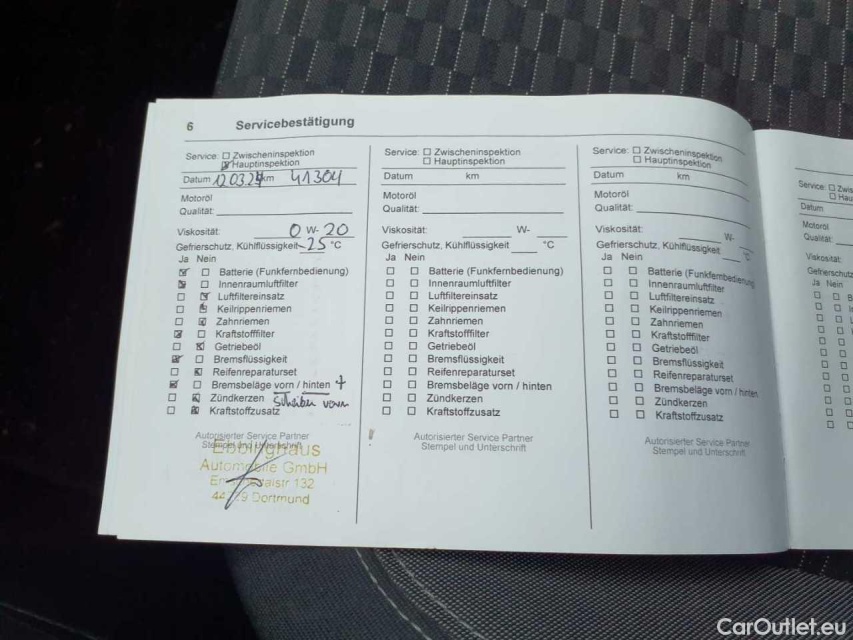 6 Servicebestätigung
Service: Zwischeninspektion
Hauptinspektion
Datum 12.03.24 km 41304
Motoröl
Qualität:
Viskosität: 0 W- 20
Gefrierschutz, Kühlflüssigkeit -25 °C
Ja Nein
Batterie (Funkfernbedienung)
Innenraumluftfilter
Luftfiltereinsatz
Keilrippenriemen
Zahnriemen
Kraftstofffilter
Getriebeöl
Bremsflüssigkeit
Reifenreparaturset
Bremsbeläge vorn / hinten +
Zündkerzen Scheiben vorn
Kraftstoffzusatz
Autorisierter Service Partner
Stempel und Unterschrift
Ebbinghaus
Automobile GmbH
132
Dortmund
Service: Zwischeninspektion
Hauptinspektion
Datum km
Motoröl
Qualität:
Viskosität: W-
Gefrierschutz, Kühlflüssigkeit °C
Ja Nein
Batterie (Funkfernbedienung)
Innenraumluftfilter
Luftfiltereinsatz
Keilrippenriemen
Zahnriemen
Kraftstofffilter
Getriebeöl
Bremsflüssigkeit
Reifenreparaturset
Bremsbeläge vorn / hinten
Zündkerzen
Kraftstoffzusatz
Autorisierter Service Partner
Stempel und Unterschrift
Service: Zwischeninspektion
Hauptinspektion
Datum km
Motoröl
Qualität:
Viskosität: W-
Gefrierschutz, Kühlflüssigkeit °C
Ja Nein
Batterie (Funkfernbedienung)
Innenraumluftfilter
Luftfiltereinsatz
Keilrippenriemen
Zahnriemen
Kraftstofffilter
Getriebeöl
Bremsflüssigkeit
Reifenreparaturset
Bremsbeläge vorn / hinten
Zündkerzen
Kraftstoffzusatz
Autorisierter Service Partner
Stempel und Unterschrift
Service: Zwis
Hau
Datum
Motoröl
Qualität:
Viskosität:
Gefrierschutz
Ja Nein
CarOutlet.eu